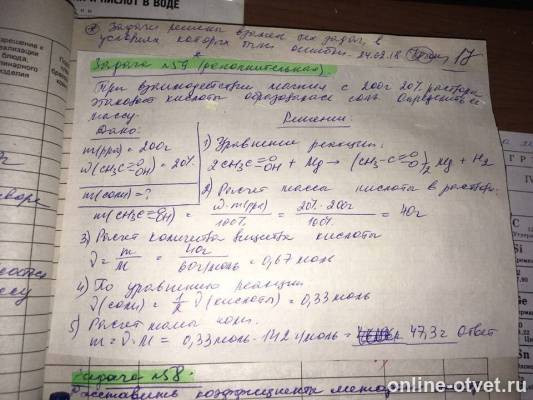 И КИСЛОТ В ВОДЕ
Задачи решены взамен тех задач, в
условиях которых были ошибки. 24.03.18 17
Задача №57 (дополнительная).
При взаимодействии магния с 200г 20% раствора
этановой кислоты образовалась соль. Определите её
массу.
Дано:
Решение:
m(р-ра) = 200г
ω(CH3C=O OH) = 20%
m(соли) = ?
1) Уравнение реакции:
2CH3C=O OH + Mg → (CH3-C=O O)2 Mg + H2
2) Расчет массы кислоты в растворе.
m(CH3C=O OH) = ω·m(р-ра) / 100% = 20%·200г / 100% = 40г
3) Расчет количества вещества кислоты
ν = m/M = 40г / 60г/моль = 0,67 моль
4) По уравнению реакции
ν(соли) = 1/2 ν(кислоты) = 0,33 моль
5) Расчет массы соли.
m = ν·M = 0,33 моль·142 г/моль = 47,3г Ответ
Задача №58.
Расставить коэффициенты методом
online-otvet.ru